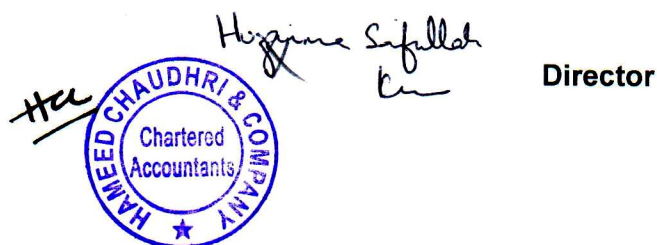 Huzaima Saifullah
Director
Hcc
HAMEED CHAUDHRI & COMPANY
Chartered
Accountants